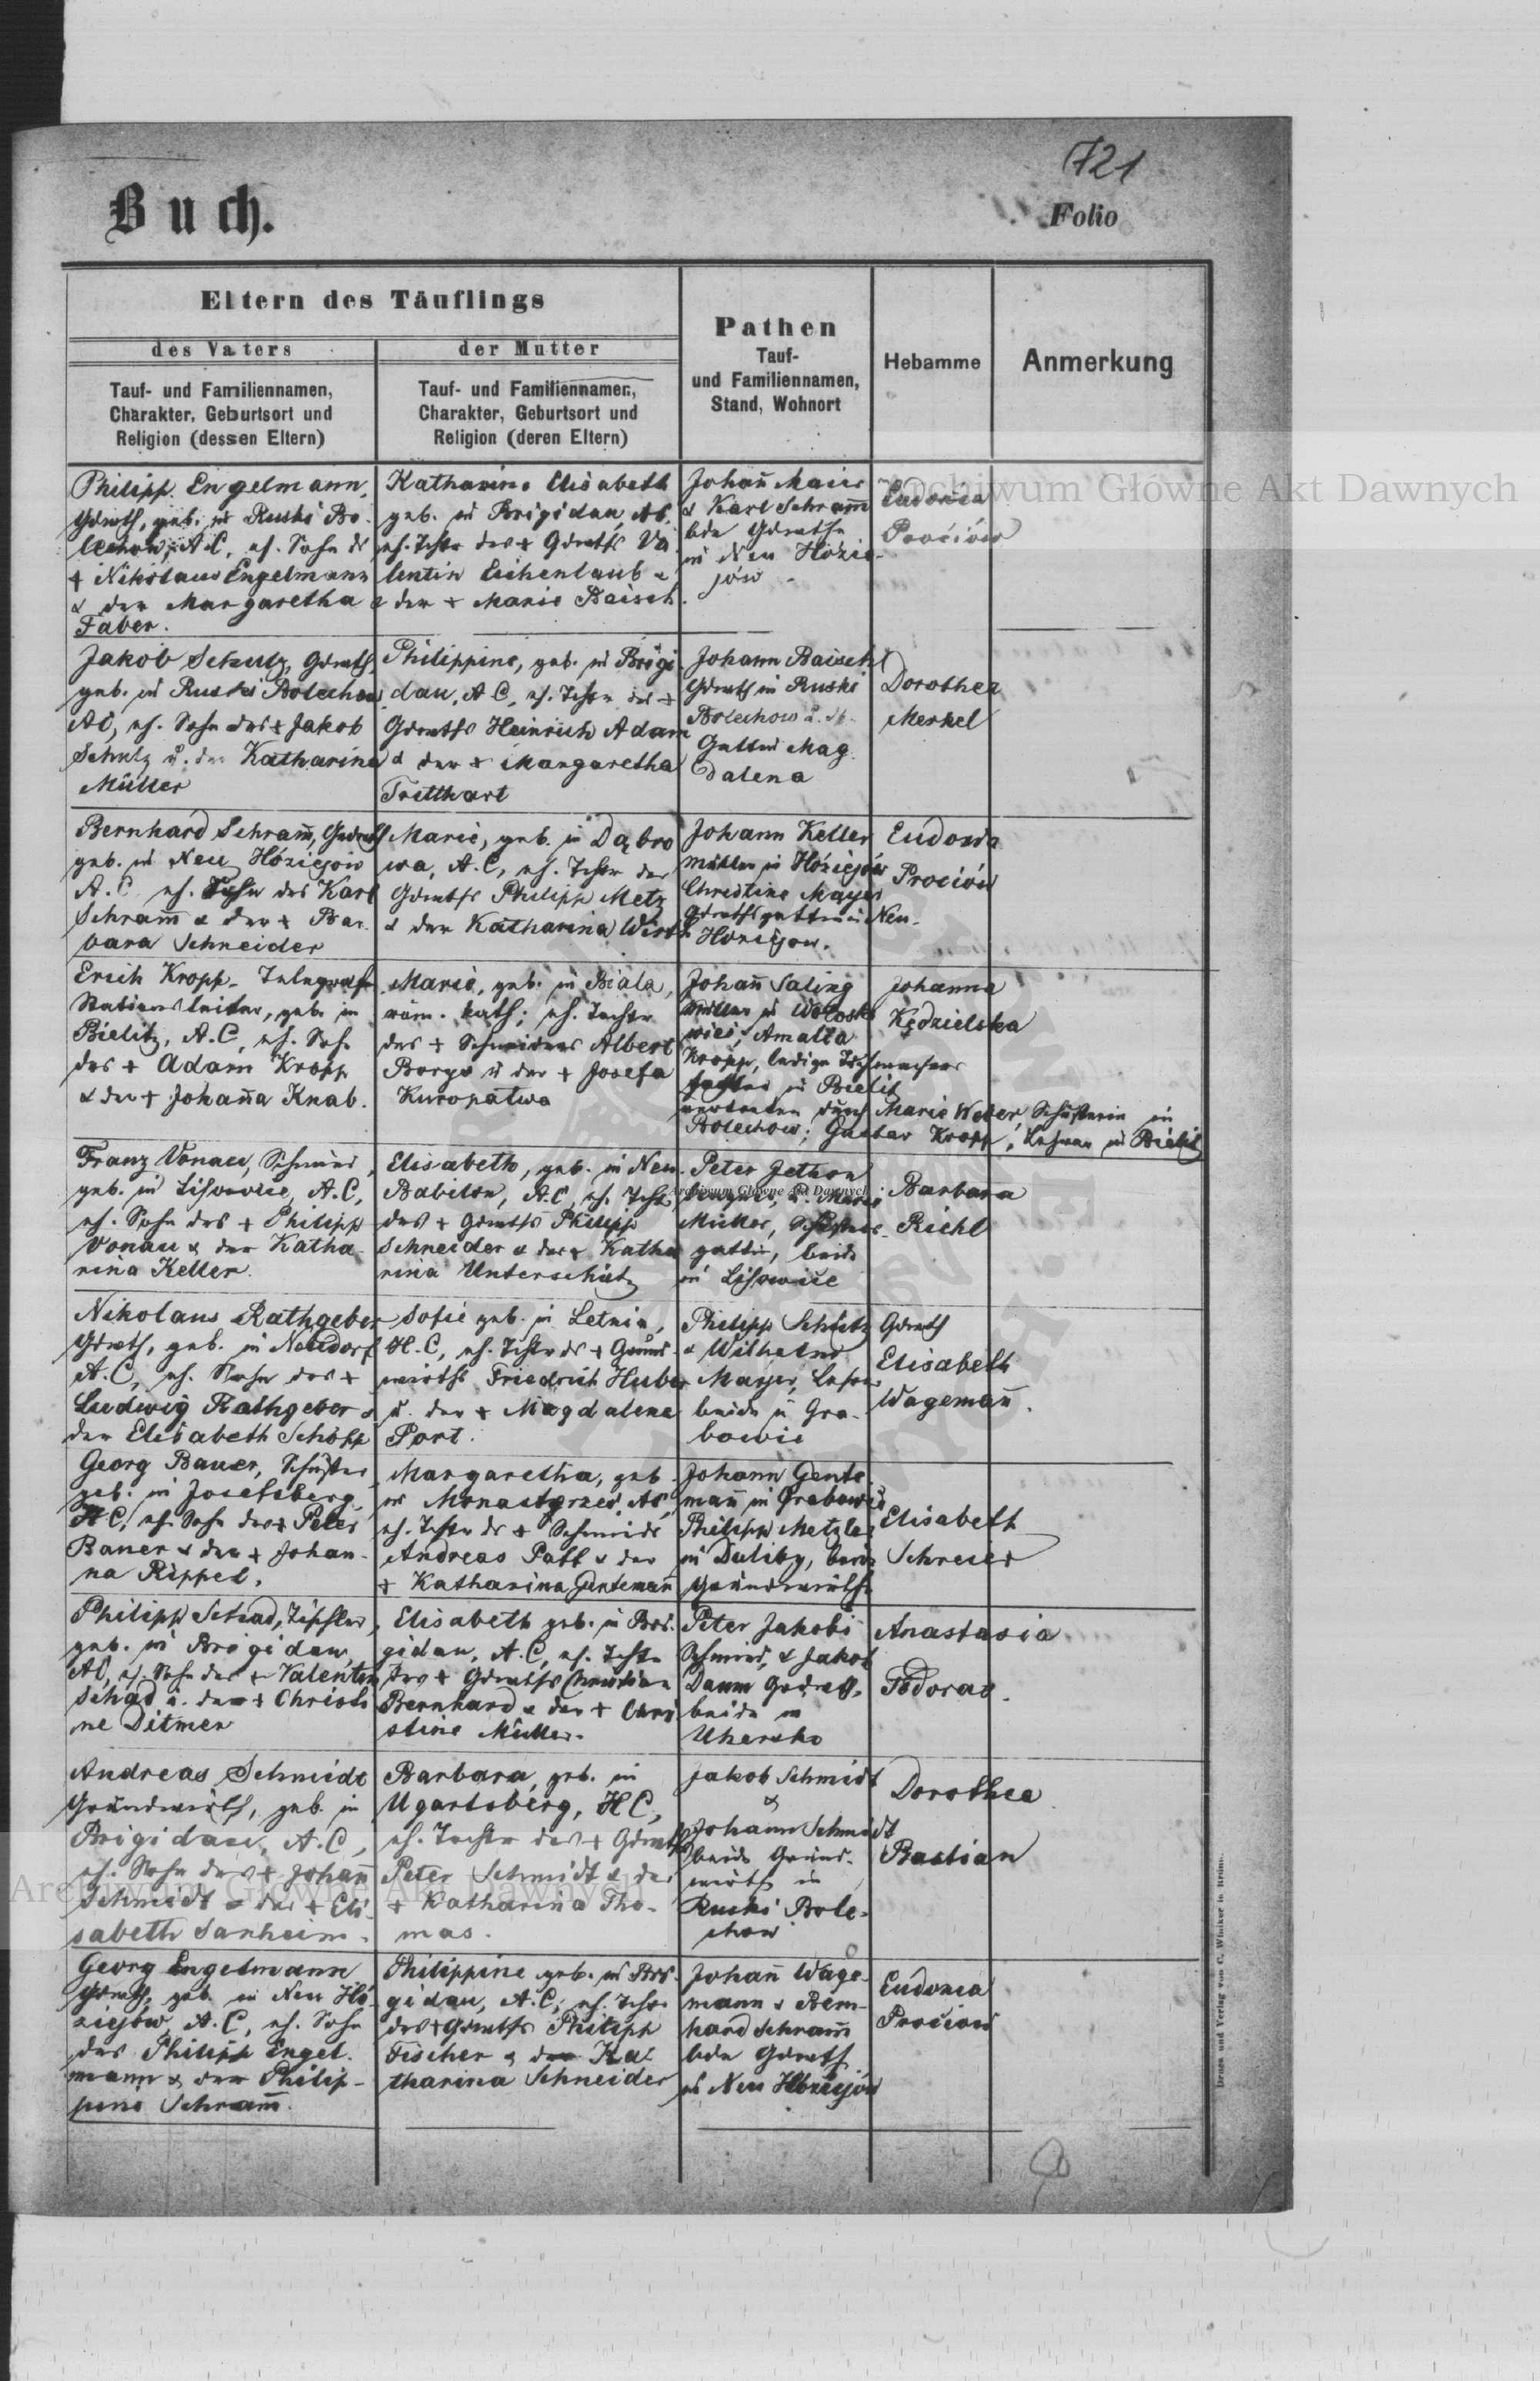 721
Buch.
Folio
Eltern des Täuflings
des Vaters
der Mutter
Pathen
Tauf-
und Familiennamen,
Stand, Wohnort
Hebamme
Anmerkung
Tauf- und Familiennamen,
Charakter, Geburtsort und
Religion (dessen Eltern)
Tauf- und Familiennamen,
Charakter, Geburtsort und
Religion (deren Eltern)
Philipp Engelmann,
Gdwth, geb. in Ruski Bo-
lechow, A.C, eh. Sohn ds
+ Nikolaus Engelmann
& der Margaretha
Faber.
Katharina Elisabeth
geb. in Brigidau, AC,
eh. Tchtr des + Gdwths Va
lentin Eichenlaub &
& der + Marie Baisch.
Johañ Maier
& Karl Schram̄
bde Gdwthe
in Neu Hözie-
jów
Eudoxia
Prociów
Jakob Schutz, Gdwth,
geb. in Ruski Bolechow
AC, eh. Sohn des + Jakob
Schutz u. der Katharina
Müller
Philippine, geb. in Brigi
dau, A.C, eh. Tchtr des +
Gdwths Heinrich Adam
& der + Margaretha
Tretthart
Johann Baisch
Gdwth in Ruski
Bolechow u. 
Gattin Mag
dalena
Dorothea
Merkel
Bernhard Schram̄, Gdwth
geb. in Neu Hóziejow
A.C. eh. Sohn des Karl
Schram̄ & der + Bar-
bara Schneider
Marie, geb. in Dąbro
wa, A.C, eh. Tchtr des
Gdwths Philipp Metz
& der Katharina Wirth
Johann Keller
Müller in Hóziejów
Christine Mayer
Gdwthsgattin in Neu-
Hoziejow.
Eudoxia
Prociów
Erich Kropp, Telegrafen
Stationsleiter, geb. in
Bielitz, A.C, eh. Sohn
des + Adam Kropp
& der + Johañna Knab.
Marie, geb. in Biala,
röm. kath; eh. Tochtr
des + Schneiders Albert
Borys u der + Josefa
Kuropatwa
Johañ Saling
Müller in Woloska
wies, Amalia
Kropp, ledige Tchmachers
tochter in Bielitz
vertreten durch Marie Weber, Schusterin in
Bolechow; Gustav Kropp, Lehrer in Bielitz
Johanna
Kędzielska
Franz Vonau, Schmied,
geb. in Lisowice, A.C,
eh. Sohn des + Philipp
Vonau & der Katha-
rina Keller.
Elisabeth, geb. in Neu
Babilon, A.C, eh. Tchtr
des + Gdwths Philipp
Schneider & der + Katha
rina Unterschütz
Peter Jethon
Wagner, u. Marie
Müller, Schusters-
gattin, beide
in Lisowice
Barbara
Riehl
Nikolaus Rathgeber
Gdwth, geb. in Neudorf
A.C, eh. Sohn des +
Ludwig Rathgeber &
der Elisabeth Schöpp
Sofie geb. in Letnia,
H.C, eh. Tchtr ds + Grund-
wirths Friedrich Huber
u. der + Magdalena
Port.
Philipp Schütz Gdwth
& Wilhelm
Mayer, Lehrer
beide in Gra-
bowie
Elisabeth
Wagemañ.
Georg Bauer, Schuster
geb. in Josefsberg,
H.C, eh. Sohn des + Peter
Bauer & der + Johan-
na Rippel.
Margaretha, geb.
in Monastyrzec, AC,
eh. Tchtr ds + Schmieds
Andreas Patt & der
+ Katharina Gentemañ
Johann Gente
mañ in Grabowie
Philipp Metzler
in Duliby, beide
Grundwirthe
Elisabeth
Schreier
Philipp Schad, Tischler,
geb. in Brigidau,
AC, eh. Sohn des + Valentin
Schad u. der + Christi
ne Ditmer
Elisabeth geb. in Bri-
gidau, A.C, eh. Tchtr
des + Gdwths Christian
Bernhard & der + Chri
stine Müller.
Peter Jakobi
Schmied, & Jakob
Daum Gdwth,
beide in
Uhersko
Anastasia
Fedoras.
Andreas Schmidt
Grundwirth, geb. in
Brigidau, A.C,
eh. Sohn des + Johañ
Schmidt & der + Eli-
sabeth Sanheim.
Barbara, geb. in
Ugartsberg, H.C,
eh. Tochtr des + Gdwths
Peter Schmidt & der
+ Katharina Tho-
mas.
Jakob Schmidt
&
Johann Schmidt
beide Grund-
wirthe in
Ruski Bole-
chow
Dorothea
Bastian
Georg Engelmann
Gdwth, geb. in Neu Hó-
ziejów, A.C, eh. Sohn
des Philipp Engel-
mann & der Philip-
pine Schram̄.
Philippine geb. in Bri-
gidau, A.C, eh. Tchtr
des + Gdwths Philipp
Fischer & der Ka-
tharina Schneider
Johañ Wage-
mann & Bern-
hard Schram̄
bde Gdwth
in Neu Hóziejów
Eudoxia
Prociów
Druck und Verlag von C. Winiker in Brünn.
Archiwum Główne Akt Dawnych
Archiwum Główne Akt Dawnych
Archiwum Główne Akt Dawnych